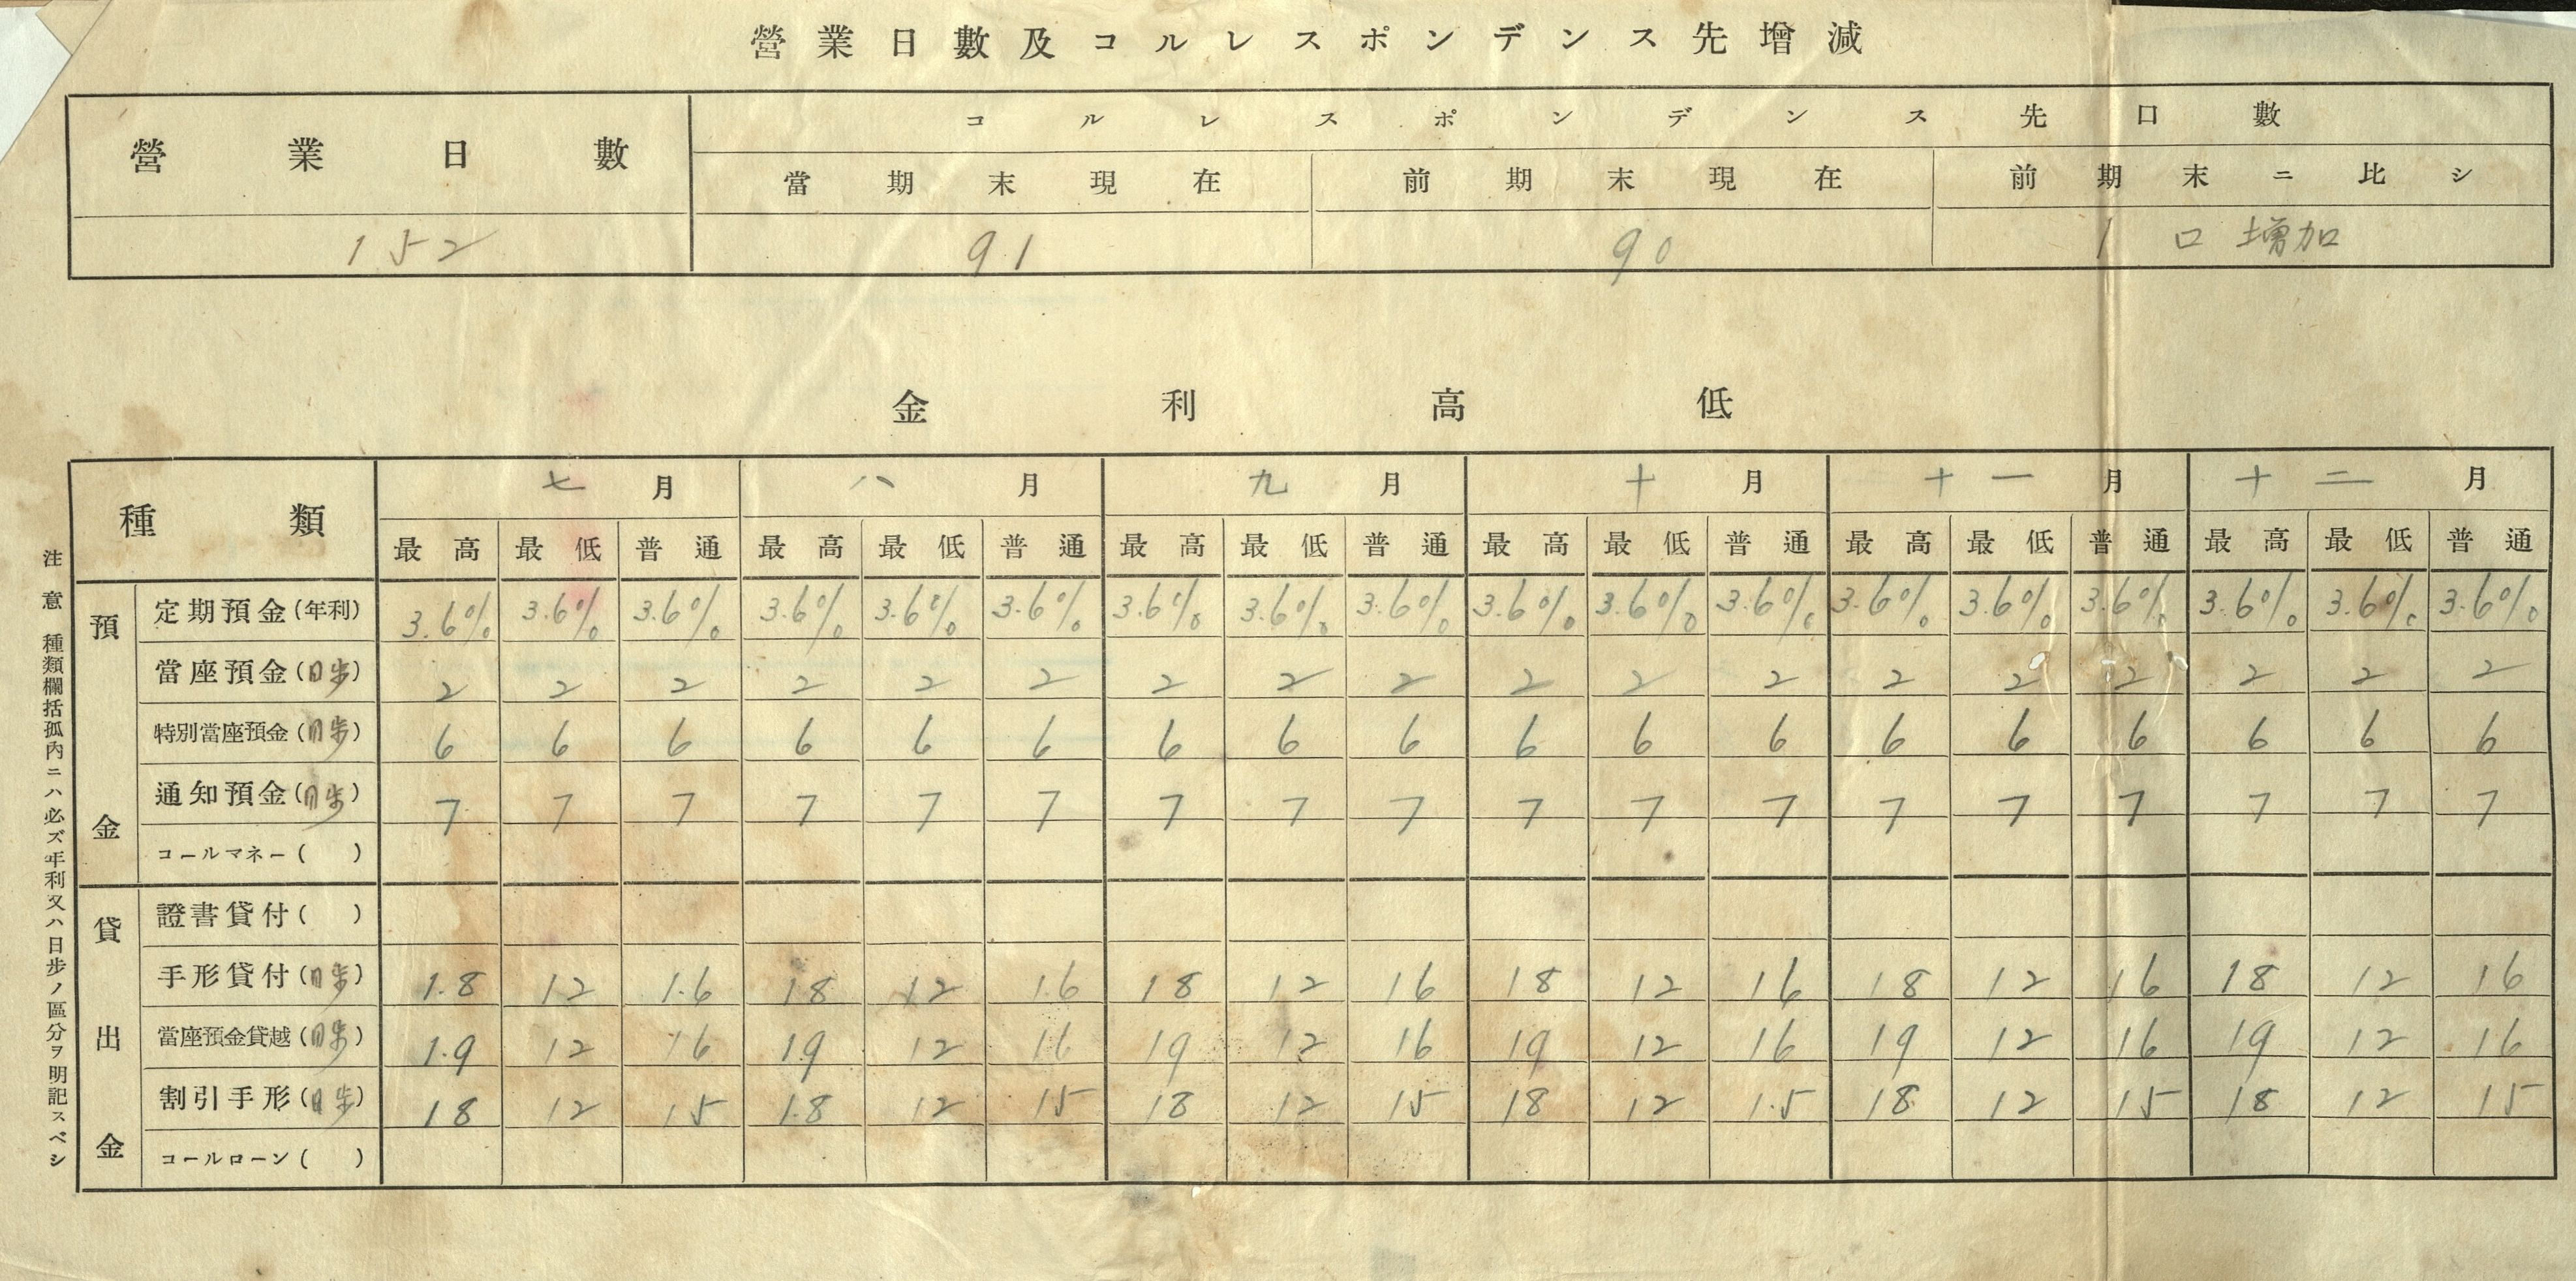 營業日數及コルレスポンデンス先增減
營業日數 コルレスポンデンス先口數
當期末現在 前期末現在 前期末ニ比シ
152 91 90 1口增加
金利高低
種類 七月 八月 九月 十月 十一月 十二月
最高 最低 普通 最高 最低 普通 最高 最低 普通 最高 最低 普通 最高 最低 普通 最高 最低 普通
預金
定期預金(年利) 3.6% 3.6% 3.6% 3.6% 3.6% 3.6% 3.6% 3.6% 3.6% 3.6% 3.6% 3.6% 3.6% 3.6% 3.6% 3.6% 3.6% 3.6%
當座預金(日歩) 2 2 2 2 2 2 2 2 2 2 2 2 2 2 2 2 2 2
特別當座預金(日歩) 6 6 6 6 6 6 6 6 6 6 6 6 6 6 6 6 6 6
通知預金(日歩) 7 7 7 7 7 7 7 7 7 7 7 7 7 7 7 7 7 7
コールマネー( )
貸出金
證書貸付( )
手形貸付(日歩) 1.8 12 1.6 18 12 16 18 12 16 18 12 16 18 12 16 18 12 16
當座預金貸越(日歩) 1.9 12 16 19 12 16 19 12 16 19 12 16 19 12 16 19 12 16
割引手形(日歩) 18 12 15 1.8 12 15 18 12 15 18 12 1.5 18 12 15 18 12 15
コールローン( )
注意 種類欄括孤內ニハ必ズ年利又ハ日步ノ區分ヲ明記スベシ